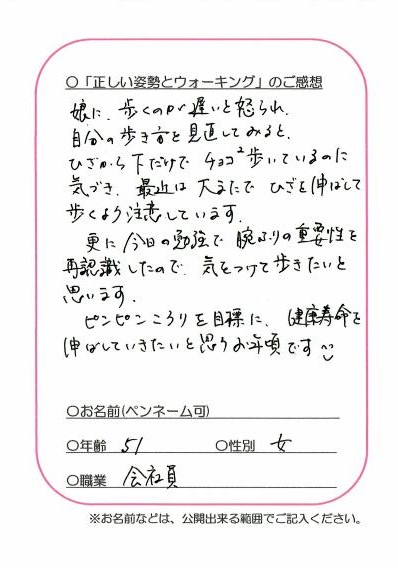 ○「正しい姿勢とウォーキング」のご感想
娘に、歩くのが遅いと怒られ、
自分の歩き方を見直してみると、
ひざから下だけで チョコ²歩いているのに
気づき、最近は 大またで ひざを伸ばして
歩くよう注意しています。
更に今日の勉強で 腕ふりの重要性を
再認識したので、気をつけて歩きたいと
思います。
ピンピンころりを目標に、健康寿命を
伸ばしていきたいと思うお年頃です
○お名前(ペンネーム可)
○年齢 51 ○性別 女
○職業 会社員
※お名前などは、公開出来る範囲でご記入ください。